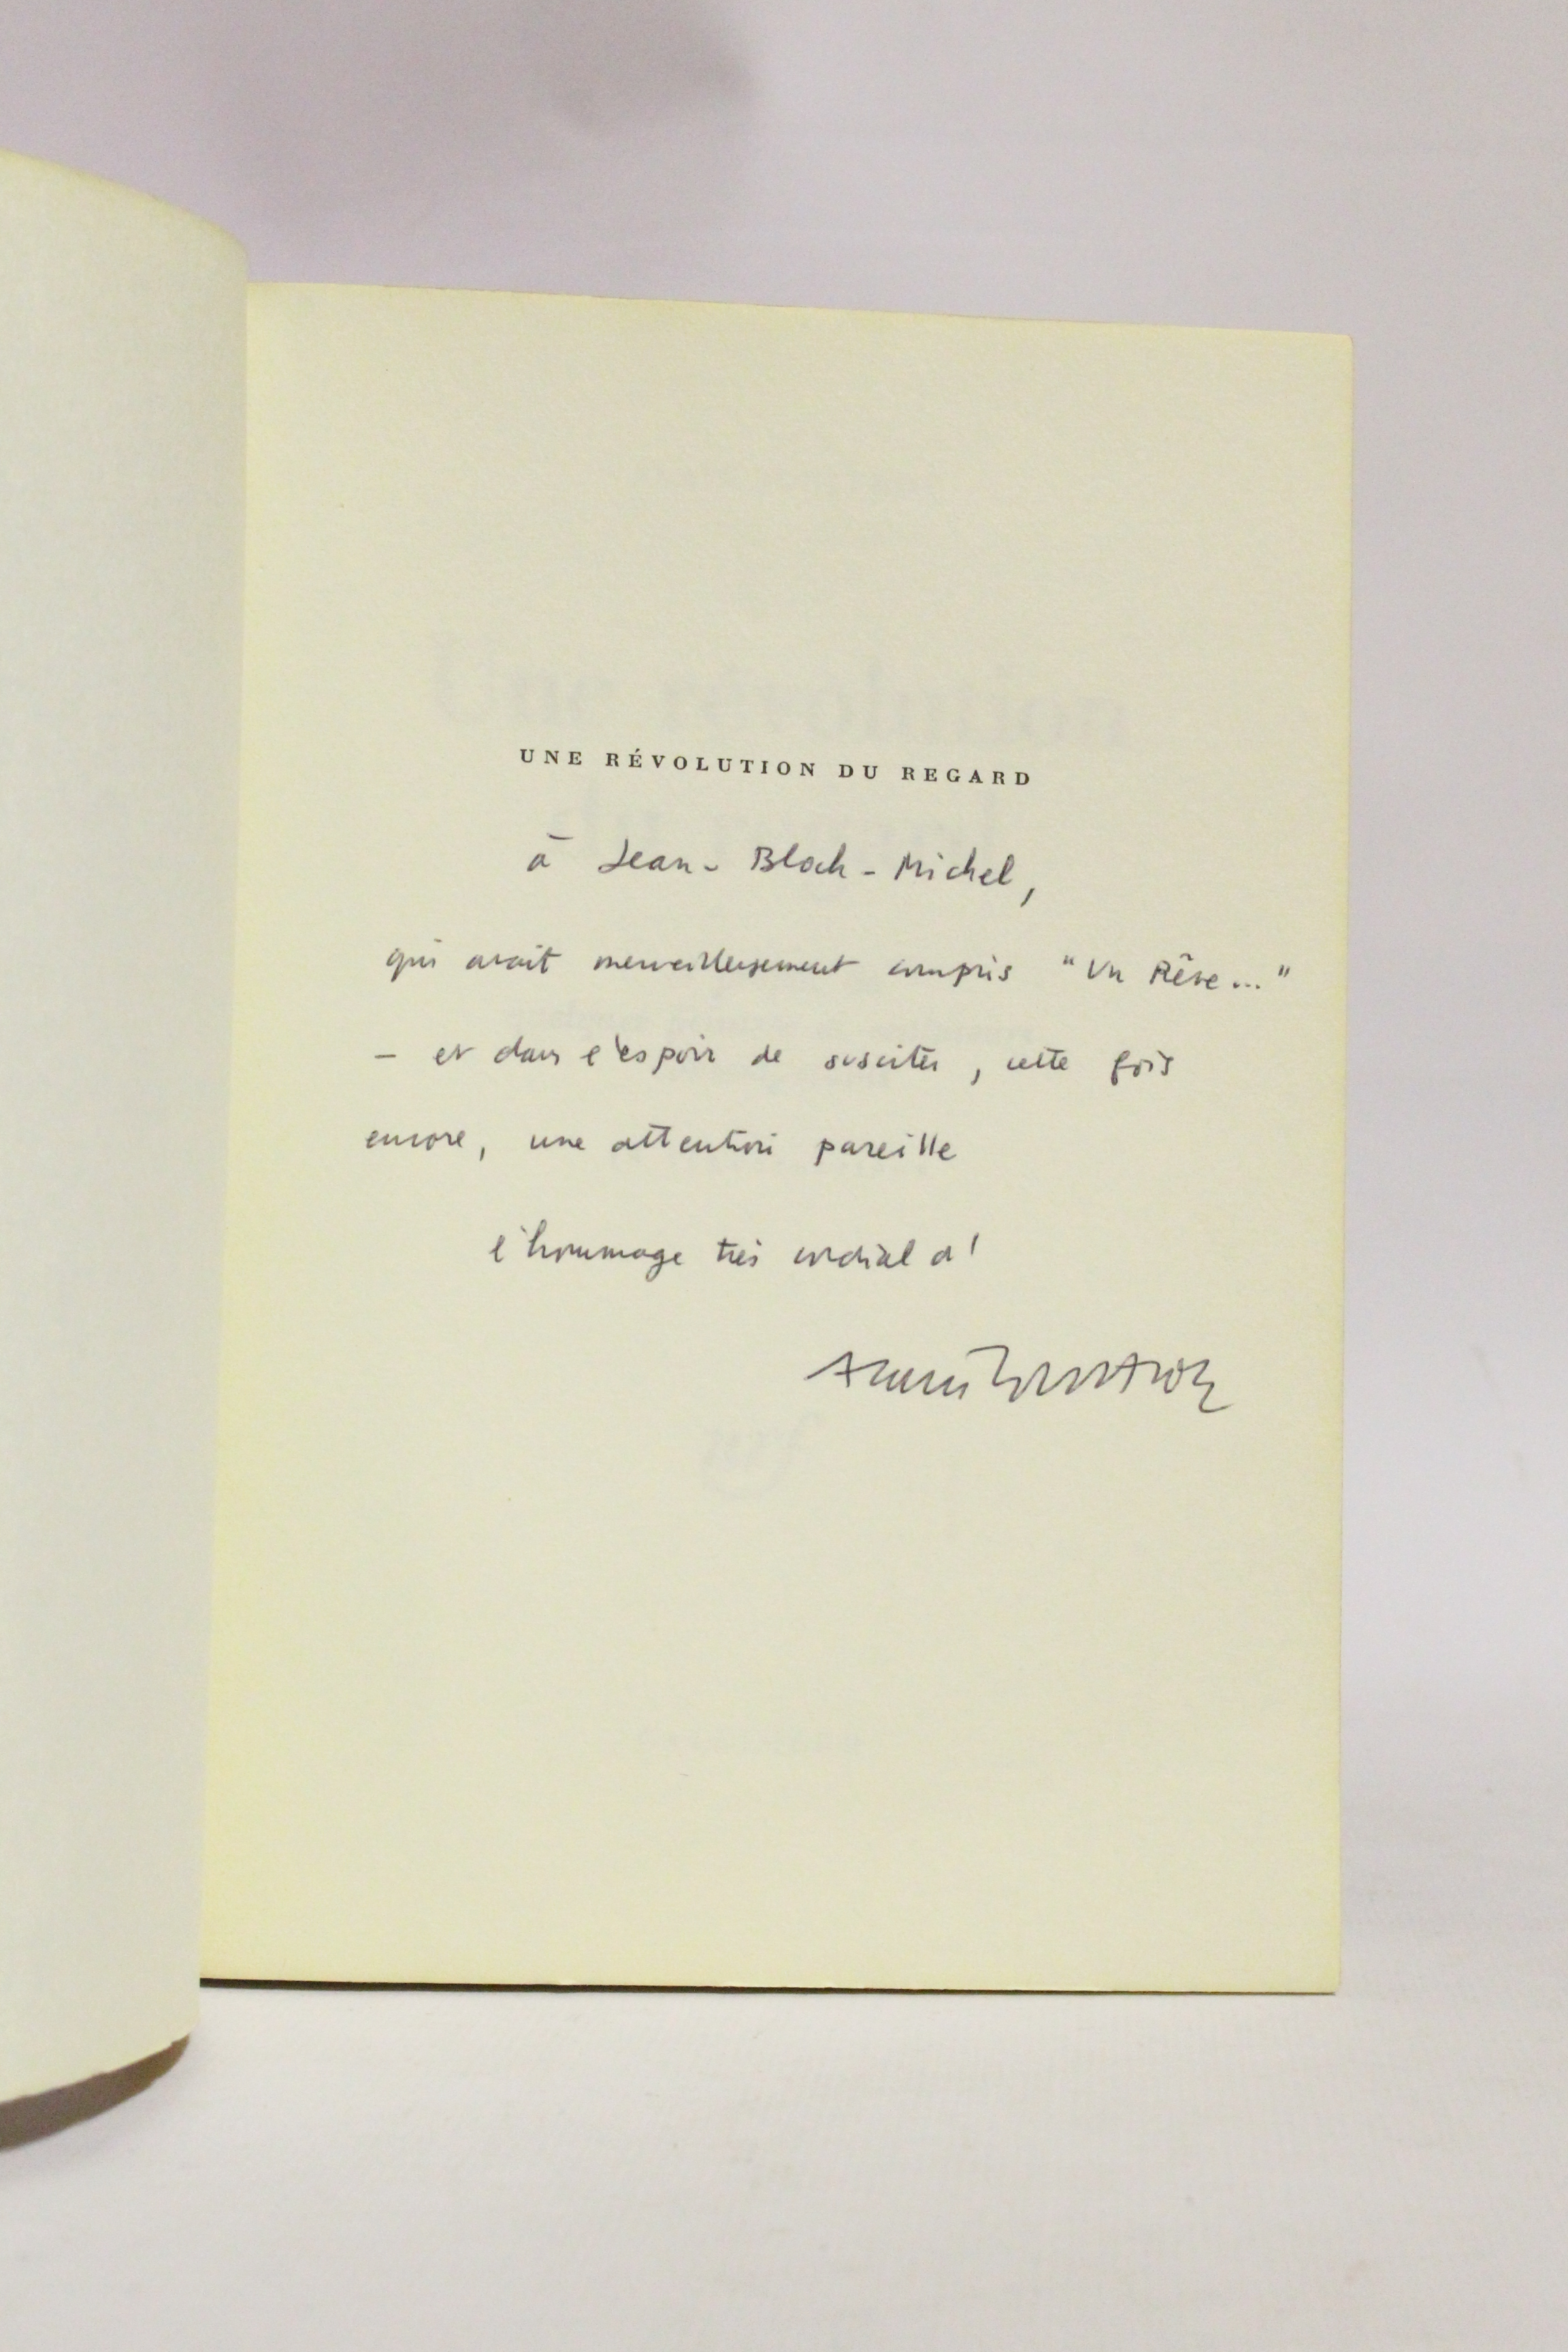 UNE RÉVOLUTION DU REGARD
à Jean-Bloch-Michel,
qui avait merveilleusement compris "Un Rêve..."
– et dans l'espoir de susciter, cette fois
encore, une attention pareille
l'hommage très cordial d'
Alain Jouffroy